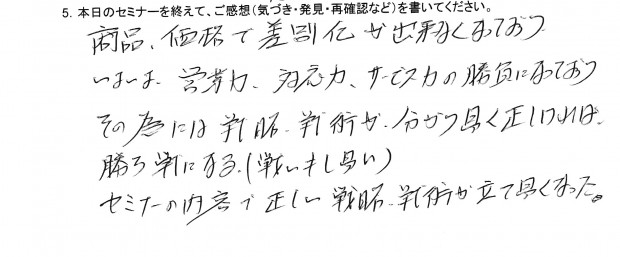 5. 本日のセミナーを終えて、ご感想(気づき・発見・再確認など)を書いてください。
商品、価格で差別化が出来なくなっており
いまは、営業力、対応力、サービス力の勝負になっており
その為には戦略、戦術が、分かり易く正しければ、
勝ち戦になる。(戦いもし易い)
セミナーの内容で正しい戦略、戦術が立て易くなった。